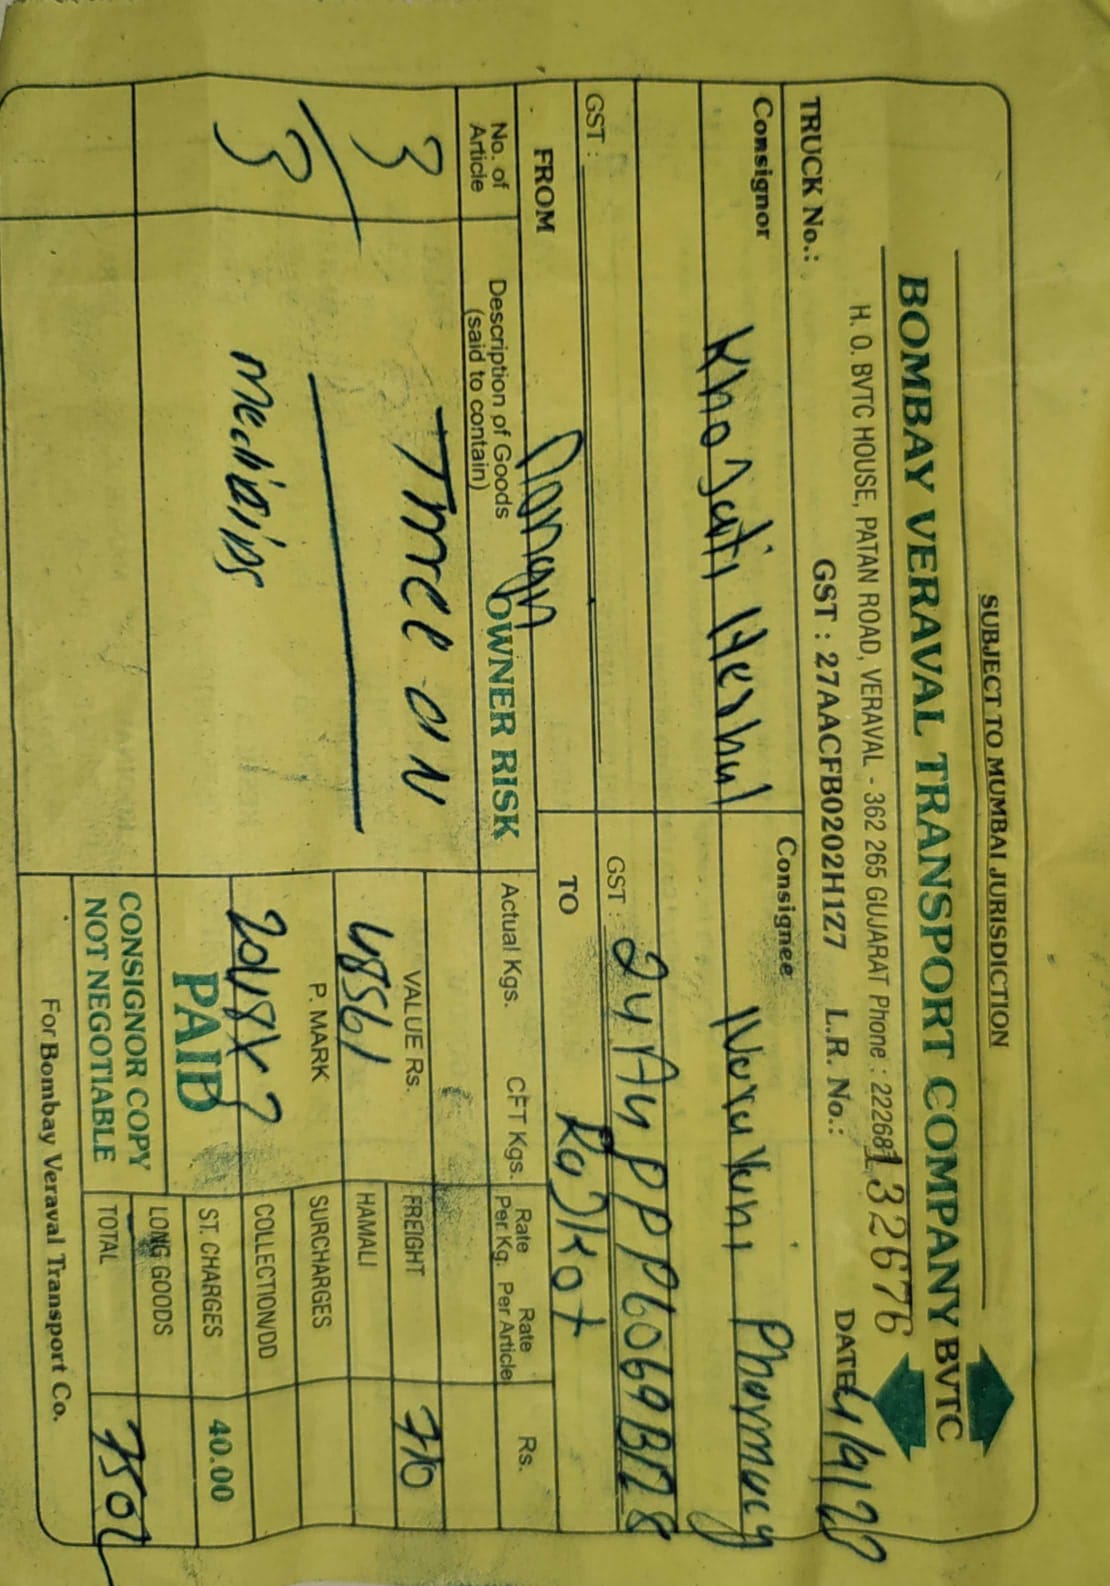 SUBJECT TO MUMBAI JURISDICTION
BOMBAY VERAVAL TRANSPORT COMPANY BVTC
H. O. BVTC HOUSE, PATAN ROAD, VERAVAL - 362 265 GUJARAT Phone : 222681
1326776
GST : 27AACFB0202H1Z7 L.R. No.:
TRUCK No.: DATE
Consignor Consignee
Pharmacy
GST : GST :
FROM TO Rajkot
No. of Article Description of Goods (said to contain) OWNER RISK Actual Kgs. CFT Kgs. Rate Per Kg. Rate Per Article Rs.
3 Three
VALUE Rs. FREIGHT 710
HAMALI
P. MARK SURCHARGES
3
COLLECTION/DD
PAID ST. CHARGES 40.00
LONG GOODS
CONSIGNOR COPY TOTAL 750
NOT NEGOTIABLE
For Bombay Veraval Transport Co.